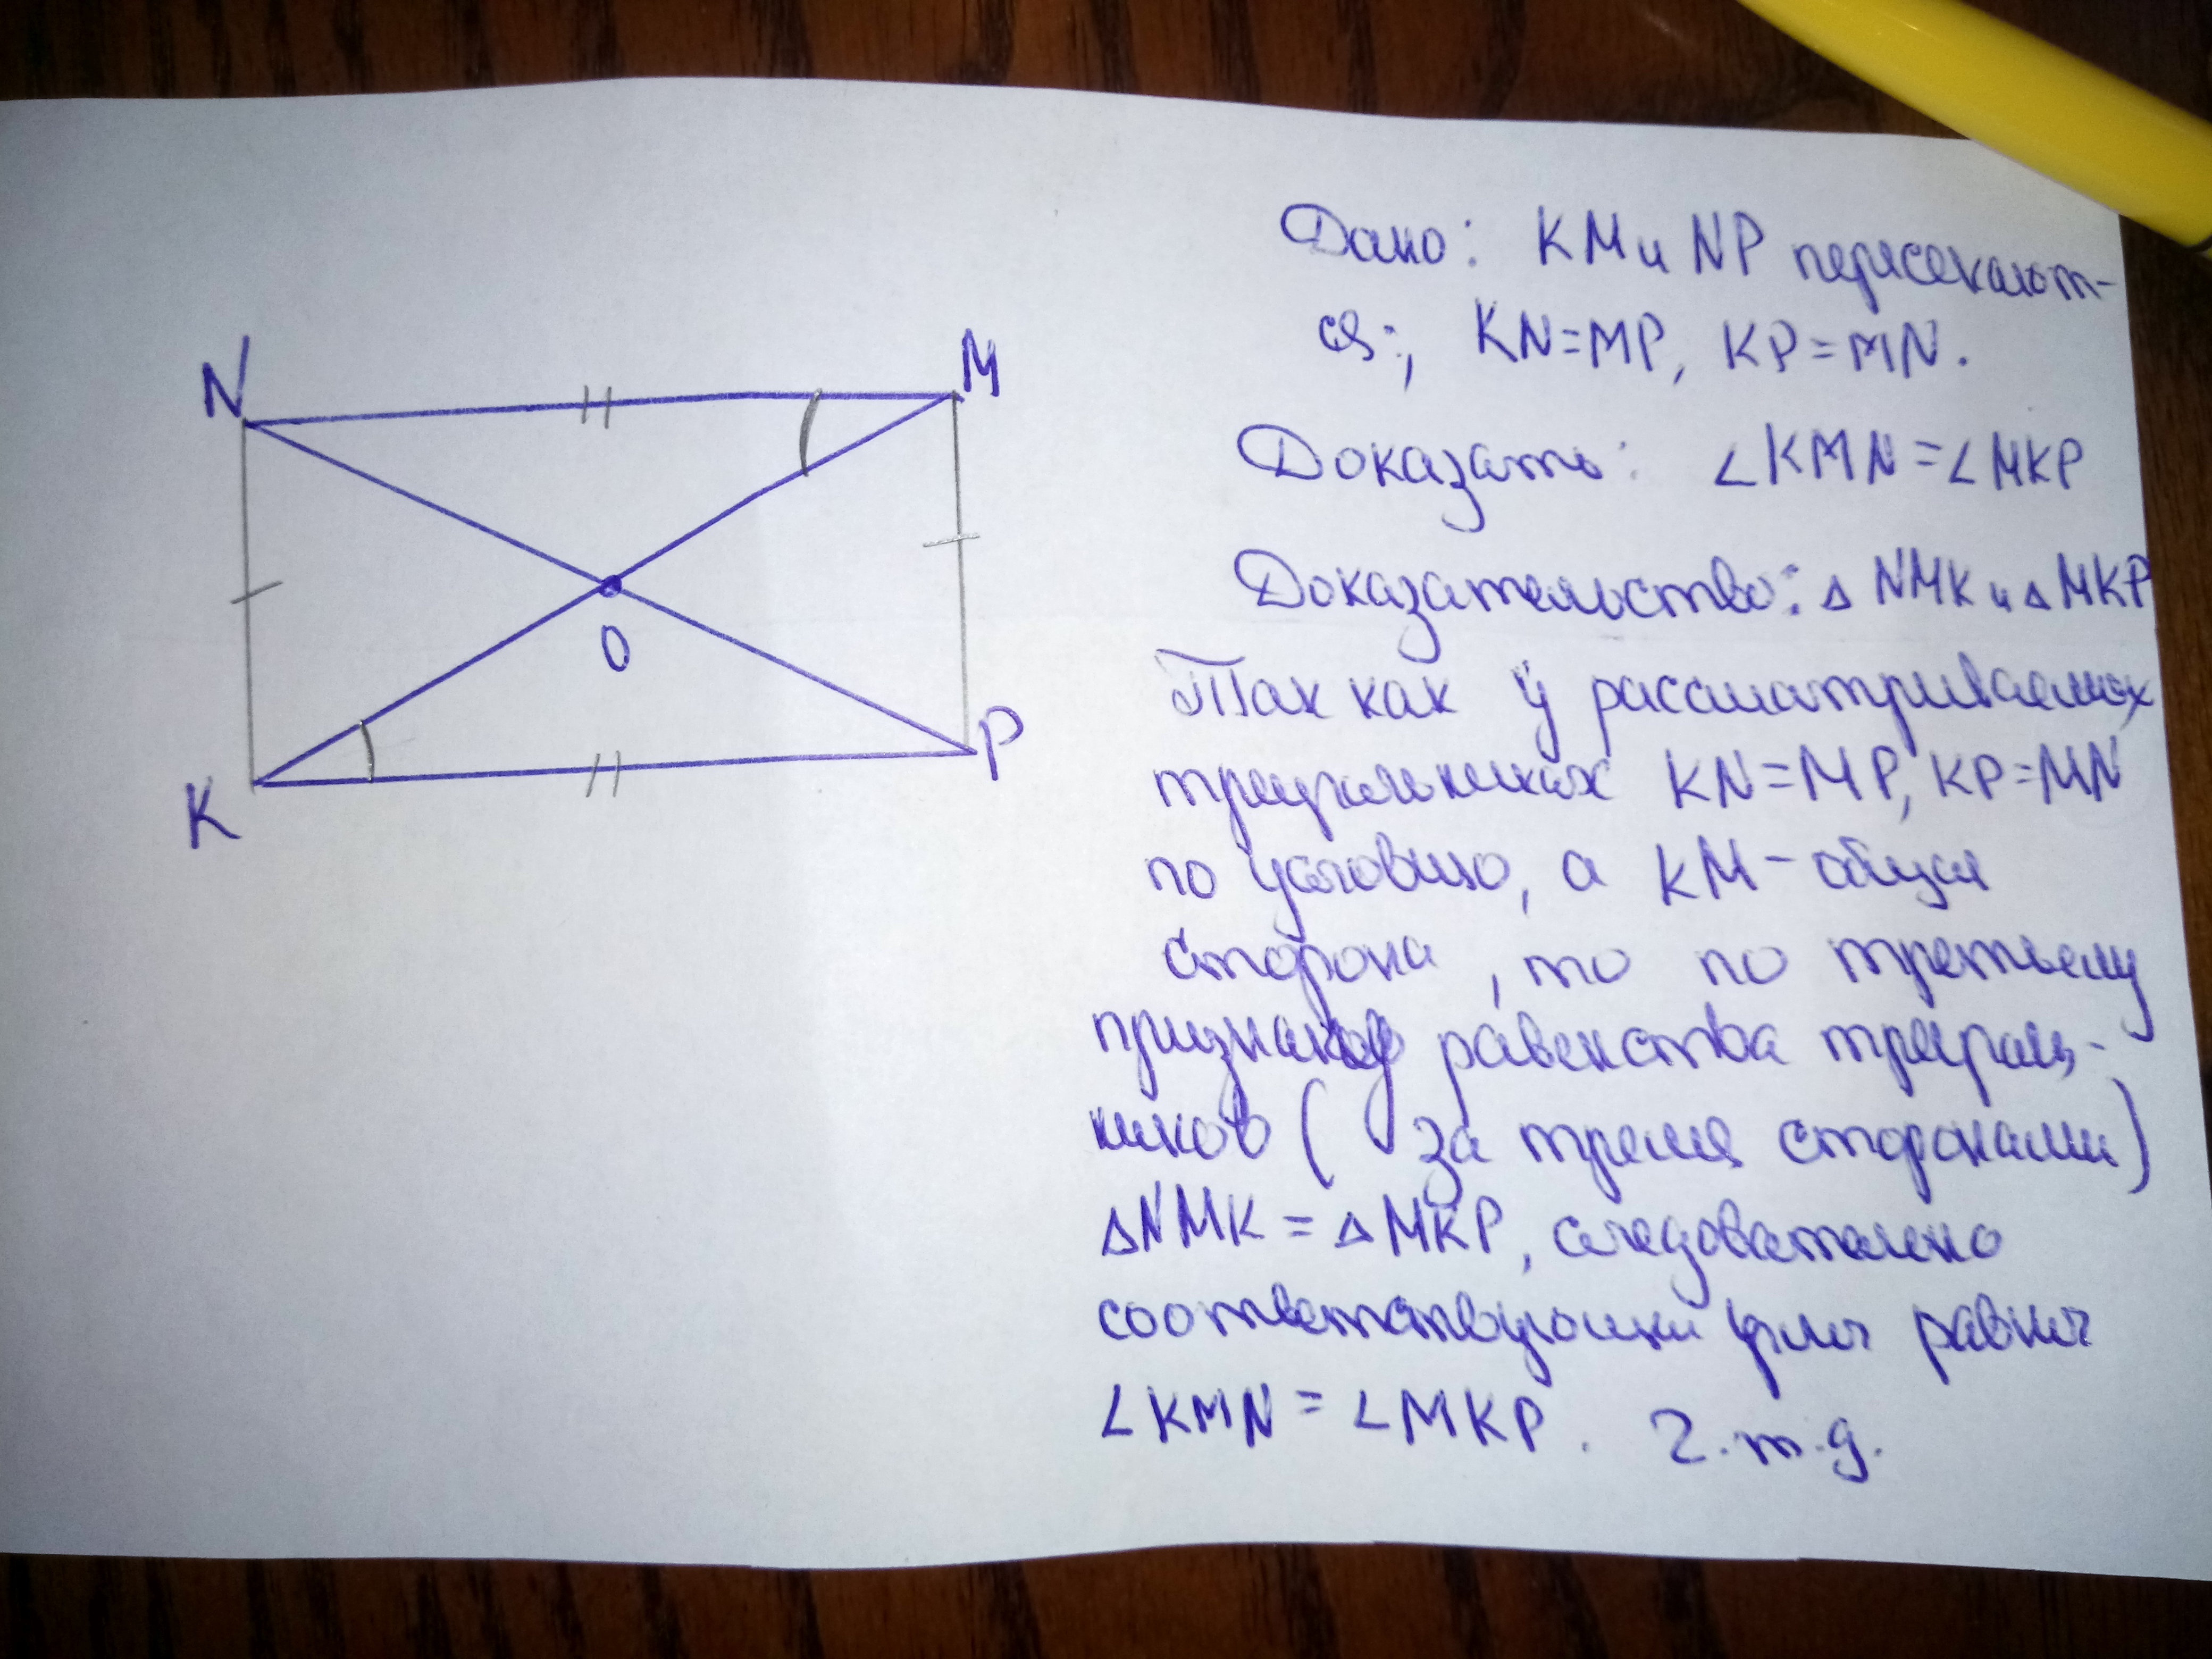 N
M
O
K
P
Дано: KM и NP пересекают-
ся; KN=MP, KP=MN.
Доказать: ∠KMN=∠MKP
Доказательство: Δ NMK и Δ MKP
Так как у рассматриваемых
треугольниках KN=MP, KP=MN
по условию, а KM - общая
сторона, то по третьему
признаку равенства треуголь-
ников ( за тремя сторонами)
ΔNMK = ΔMKP, следователено
соответствующии углы равны
∠KMN = ∠MKP. Ч.т.д.